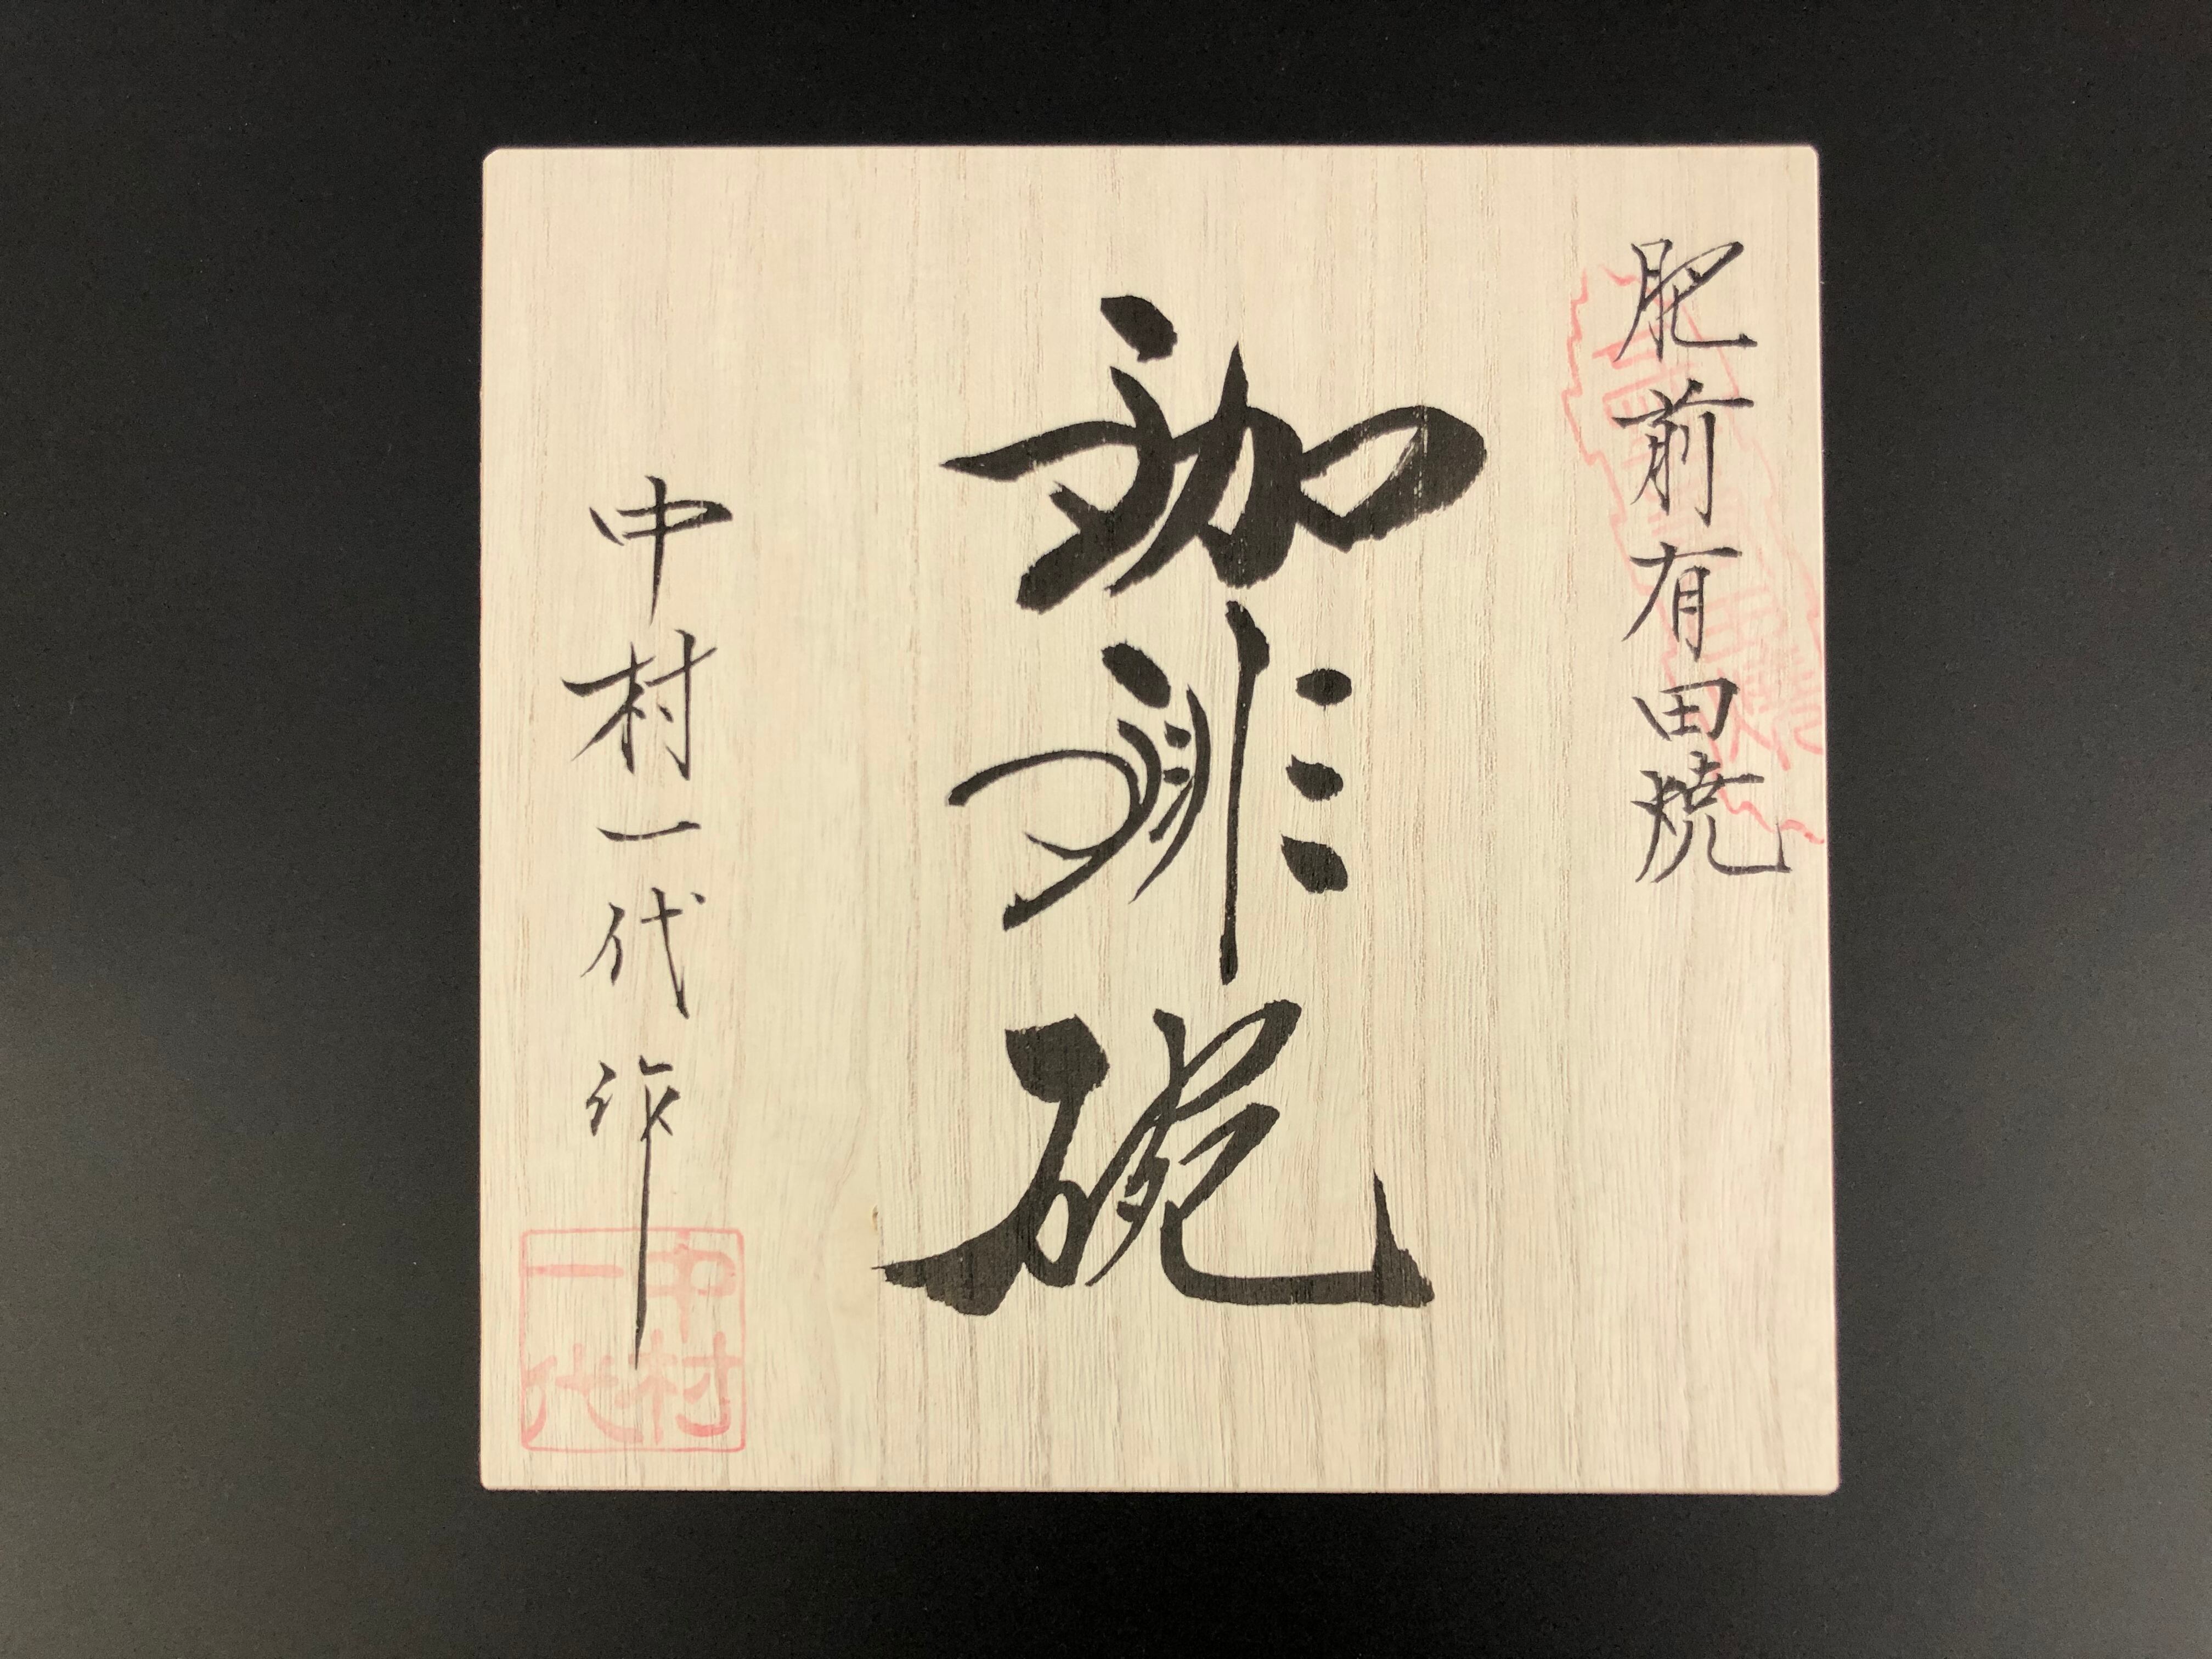 肥前有田焼
珈琲碗
中村一代作
中村
一代